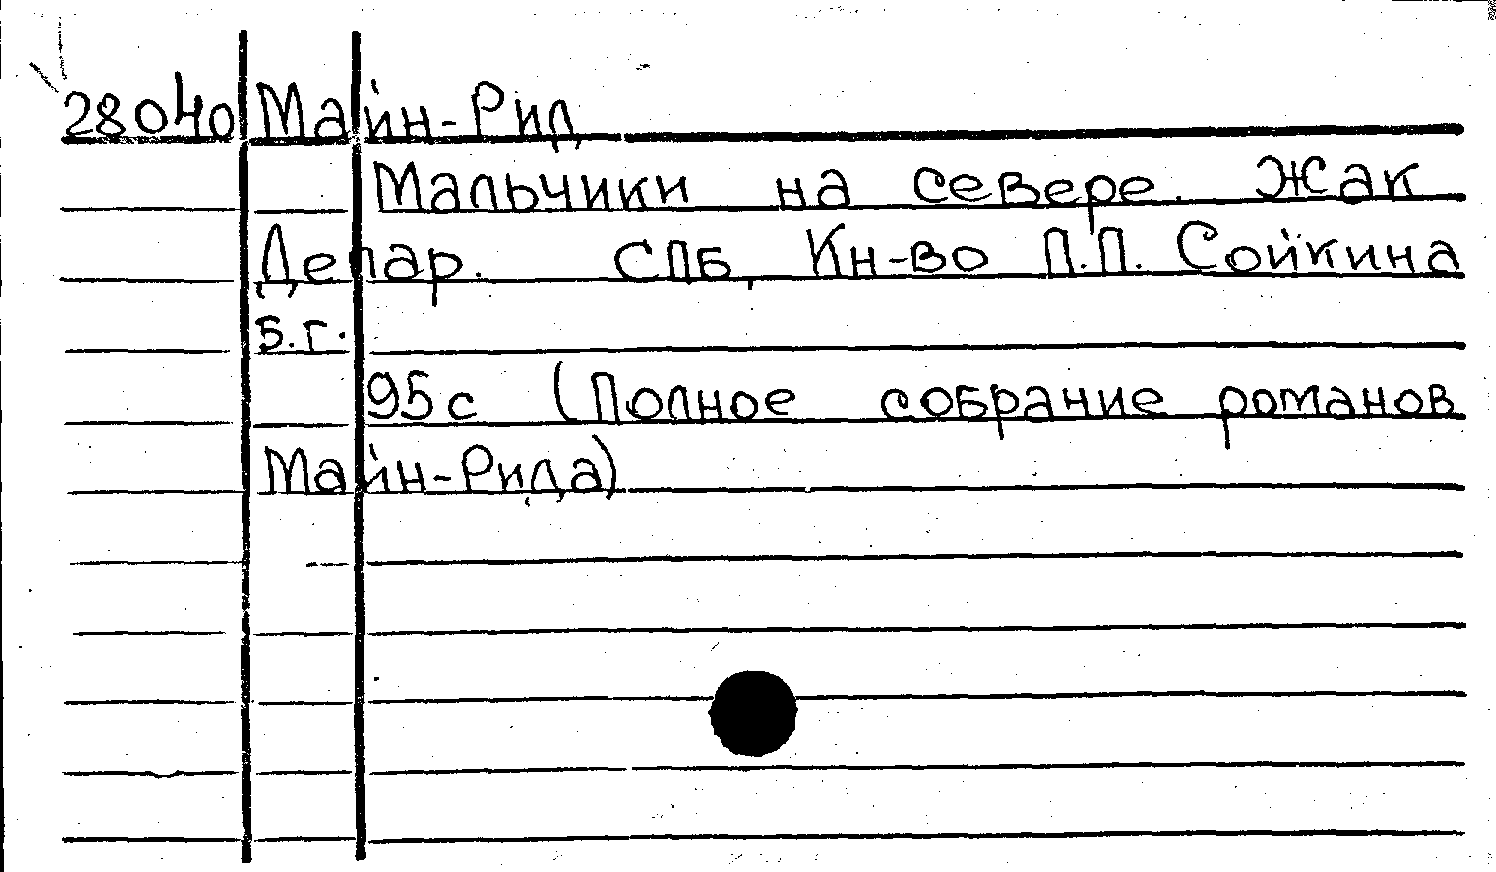 28040 Майн-Рид
Мальчики на севере. Жак
Депар. СПБ, Кн-во П.П. Сойкина
Б.г.
95с (Полное собрание романов
Майн-Рида)